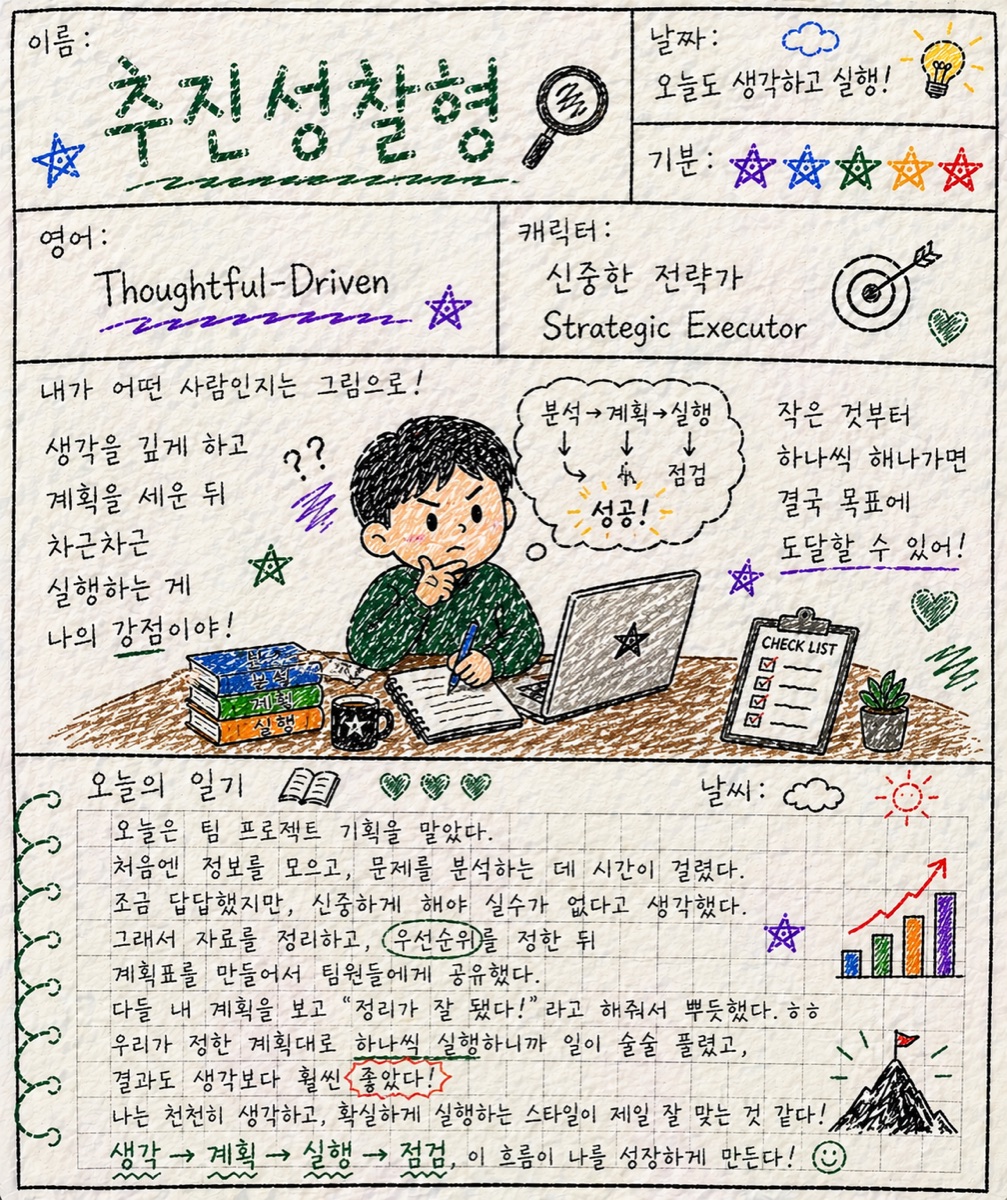 이름:
추진성찰형
날짜:
오늘도 생각하고 실행!
기분:
영어:
Thoughtful-Driven
캐릭터:
신중한 전략가
Strategic Executor
내가 어떤 사람인지는 그림으로!
생각을 깊게 하고
계획을 세운 뒤
차근차근
실행하는 게
나의 강점이야!
??
분석→계획→실행
점검
성공!
작은 것부터
하나씩 해나가면
결국 목표에
도달할 수 있어!
분석
계획
실행
CHECK LIST
오늘의 일기
날씨:
오늘은 팀 프로젝트 기획을 말았다.
처음엔 정보를 모으고, 문제를 분석하는 데 시간이 걸렸다.
조금 답답했지만, 신중하게 해야 실수가 없다고 생각했다.
그래서 자료를 정리하고, 우선순위를 정한 뒤
계획표를 만들어서 팀원들에게 공유했다.
다들 내 계획을 보고 “정리가 잘 됐다!”라고 해줘서 뿌듯했다. ㅎㅎ
우리가 정한 계획대로 하나씩 실행하니까 일이 술술 풀렸고,
결과도 생각보다 훨씬 좋았다!
나는 천천히 생각하고, 확실하게 실행하는 스타일이 제일 잘 맞는 것 같다!
생각→계획→실행→점검, 이 흐름이 나를 성장하게 만든다!